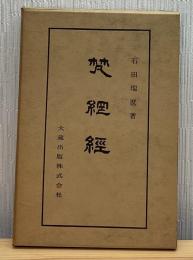 石田瑞麿著
梵網經
大蔵出版株式会社